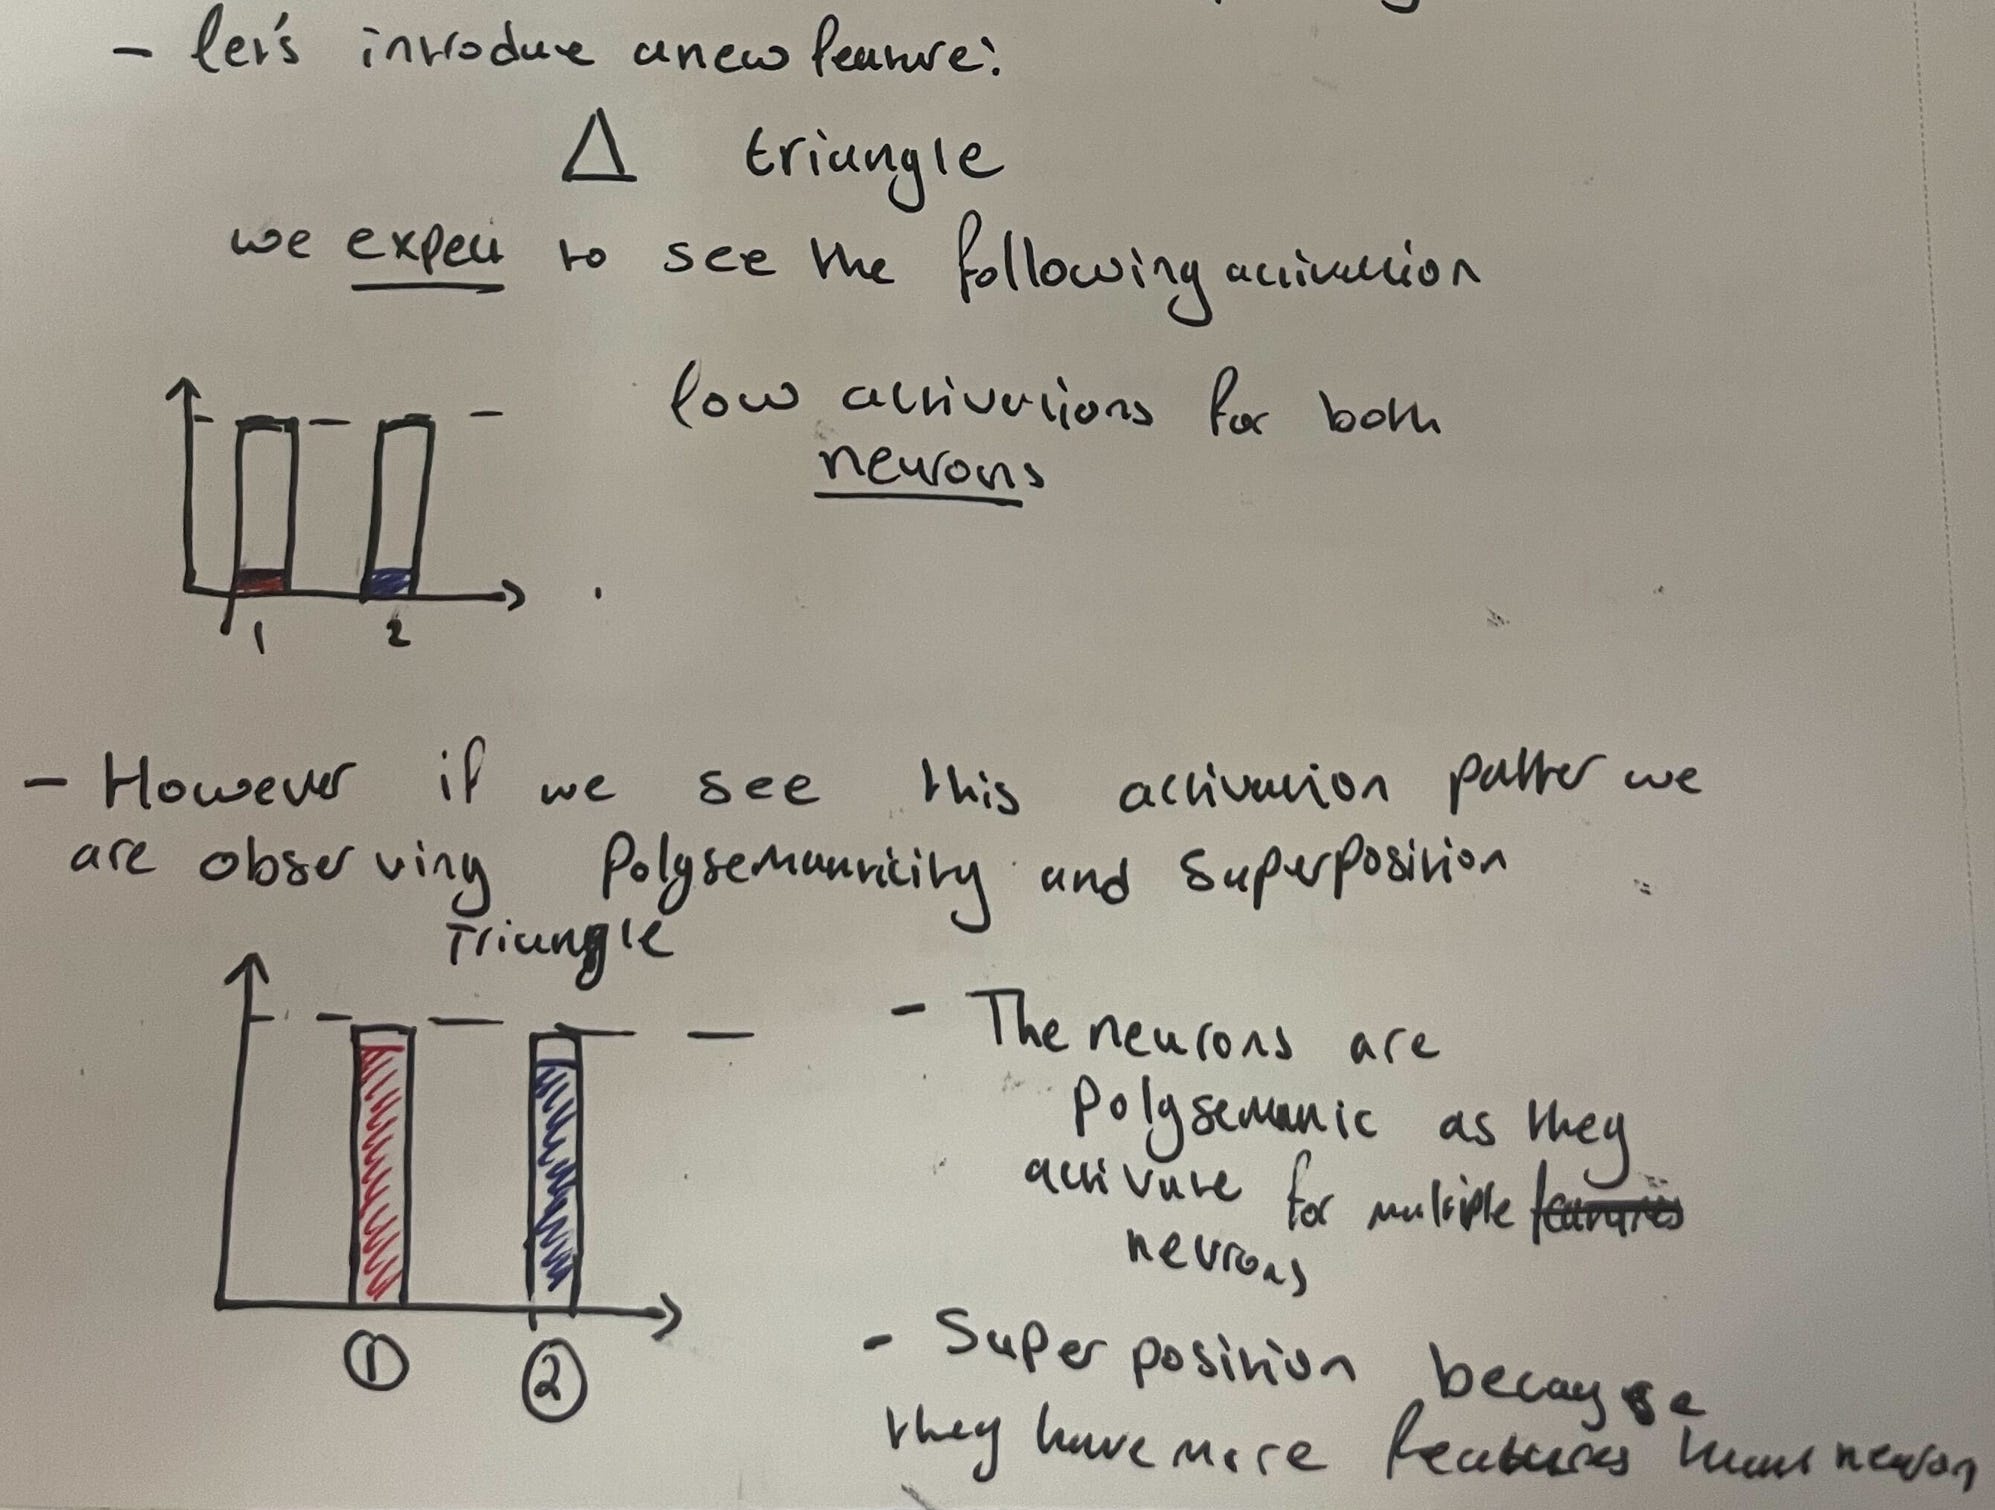 - let's introduce a new feature:
Δ triangle
we expect to see the following activation
low activations for both
neurons
1 2
- However if we see this activation patter we
are observing Polysemanticity and Superposition
Triangle
- The neurons are
Polysemantic as they
activate for multiple features
neurons
1 2
- Superposition because
they have more features than neuron